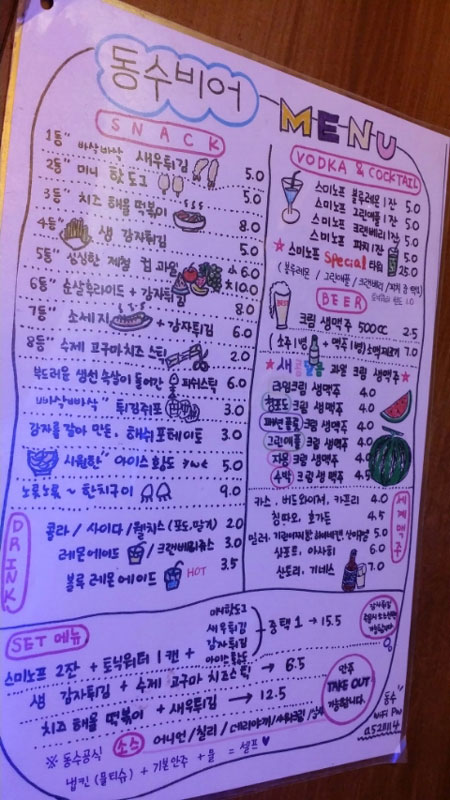 동수비어
MENU
SNACK
1등" 바삭바삭 새우튀김 5.0
2등" 미니 핫도그 5.0
3등" 치즈 해물 떡볶이 8.0
4등" 생 감자튀김 5.0
5등" 싱싱한 제철 컵 과일 小 6.0 大 10.0
6등" 순살후라이드 + 감자튀김 8.0
7등" 소세지 + 감자튀김 6.0
8등" 수제 고구마치즈 스틱 2.0
부드러운 생선 속살이 들어간 피쉬스틱 6.0
"바삭바삭" 튀김쥐포 3.0
감자를 갈아 만든, 해쉬포테이토 3.0
"시원한" 아이스 황도 5.0
노릇노릇~ 한치구이 9.0
DRINK
콜라 / 사이다 / 웰치스 (포도,딸기) 2.0
레몬에이드 / 크랜베리쥬스 3.0
블루 레몬에이드 HOT 3.5
VODKA & COCKTAIL
스미노프 블루레몬 1잔 5.0
스미노프 그린애플 1잔 5.0
스미노프 크랜베리 1잔 5.0
스미노프 피치 1잔 5.0
★ 스미노프 Special 타워 25.0
(블루레몬 / 그린애플 / 크랜베리 / 피치 중 택1)
BEER
크림 생맥주 500cc 2.5
(소주 1병 + 맥주 1병) 소맥제조기 7.0
과일 크림 생맥주 ★
라임크림 생맥주 4.0
청포도 크림 생맥주 4.0
그린애플 크림 생맥주 4.0
자몽 크림 생맥주 4.0
수박 크림 생맥주 4.5
세계맥주
카스, 버드와이저, 카프리 4.0
칭따오, 호가든 4.5
5.0
삿포로, 아사히 6.0
산토리, 기네스 7.0
SET 메뉴
스미노프 2잔 + 토닉워터 1캔 +
미니핫도그
새우튀김
감자튀김
아이스황도
중 택 1 → 15.5
생 감자튀김 + 수제 고구마 치즈스틱 → 6.5
치즈 해물 떡볶이 + 새우튀김 → 12.5
※ 동수공식 소스 어니언/칠리/데리야끼/
냅킨 (물티슈) + 기본안주 + 물 = 셀프♥
안주
TAKE OUT
가능합니다.
동수
WiFi PW